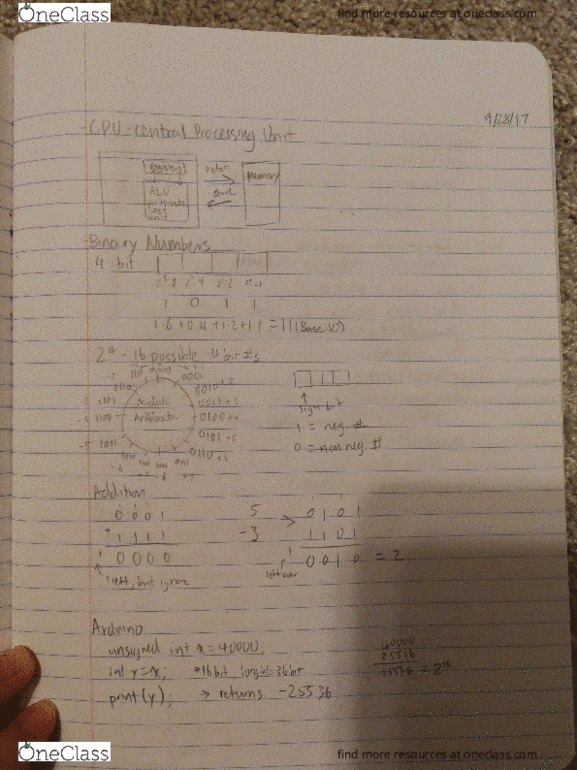 OneClass
find more resources at oneclass.com
9/28/17
-CPU-central Processing Unit
Registers
fetch
ALU
Memory
arithmetic
logic
unit
-Binary Numbers
4 bit
1 0 1 1
1·8+0·4+1·2+1·1=11(Base 10)
2⁴ - 16 possible 4 bit #s
0001
0010+2
0011+3
0100+4
0101+5
0110+6
1101
1100
1011
Modulo
Arithmetic
-5
sign bit
1 = neg #
0 = non neg #
Addition
0 0 0 1
+ 1 1 1 1
1 0 0 0 0
left, but ignore
5
-3
0 1 0 1
1 1 0 1
1 0 0 1 0 = 2
left over
Arduino
unsigned int x=40000;
int y=x; *16bit,
print(y); → returns -25536
40000
25536
65536 = 2¹⁶
OneClass
find more resources at oneclass.com